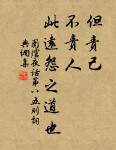 但責己
不責人
此遠怨之道也
圍爐夜話第八五則詞
典網集